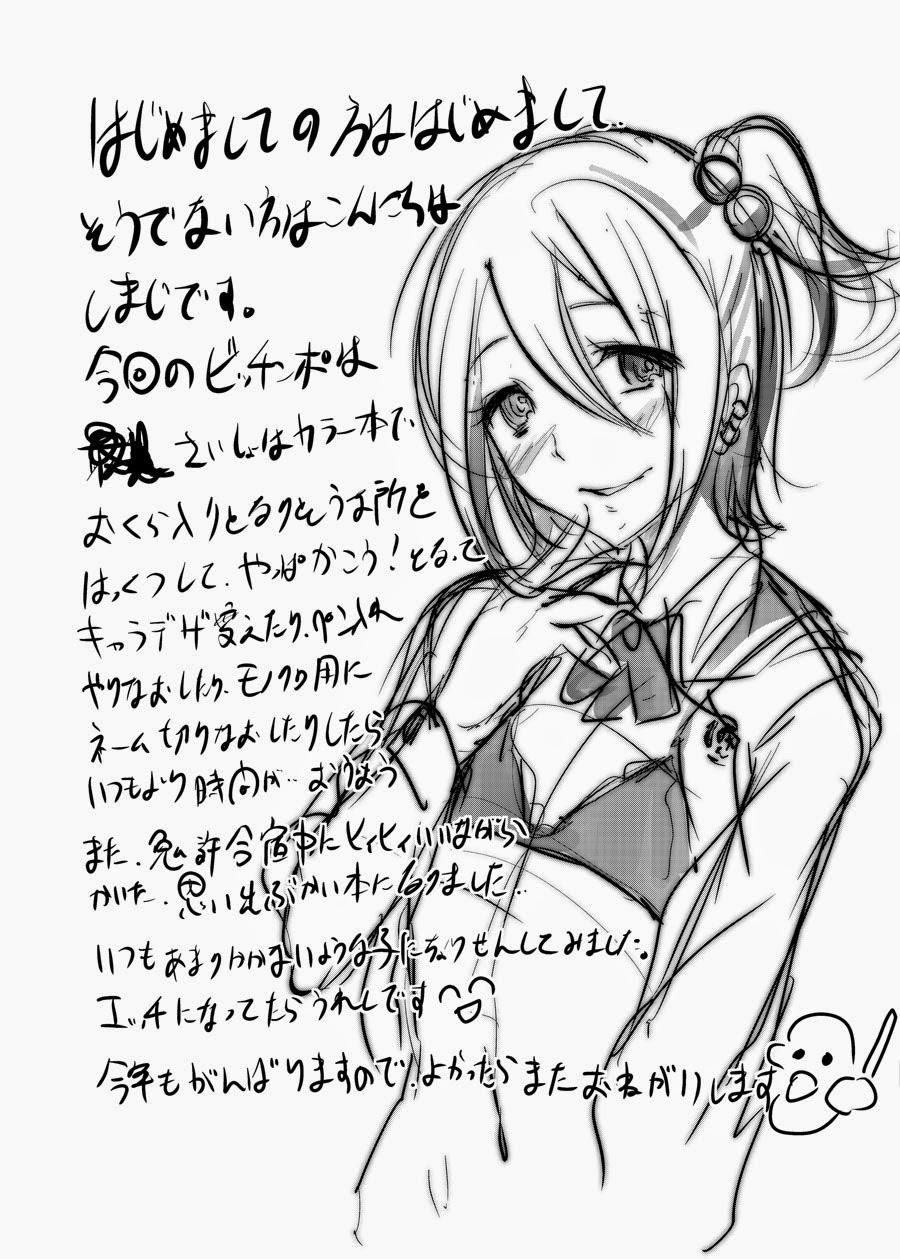 はじめましての方ははじめまして.
そうでない方はこんにちは
しまじです。
今回のビッチッポは
さいしょはカラー本で
おくら入りとなりそうな所を
はっくつして、やっぱかこう!となって
キャラデザ変えたり、ペン入れ
やりなおしたり、モノクロ用に
ネーム切りなおしたりしたら
いつもより時間が‥
また、免許合宿中にヒィヒィいいながら
かいた、思い出ぶかい本になりました‥
いつもあまりかかないような子にちょうせんしてみました。
エッチになってたらうれしいです
今年もがんばりますので、よかったらまたおねがいします